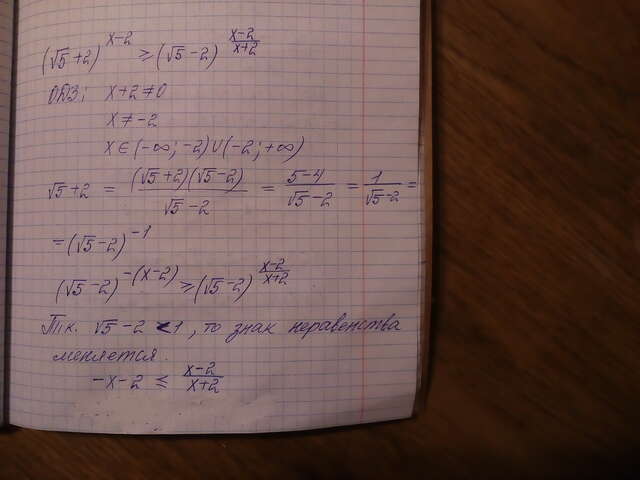 (√5+2)^(x-2) ≥ (√5-2)^((x-2)/(x+2))
ОДЗ: x+2≠0
x≠-2
x∈(-∞;-2)∪(-2;+∞)
√5+2 = ((√5+2)(√5-2))/(√5-2) = (5-4)/(√5-2) = 1/(√5-2) =
=(√5-2)^(-1)
(√5-2)^(-(x-2)) ≥ (√5-2)^((x-2)/(x+2))
Т.к. √5-2 < 1, то знак неравенства
меняется.
-x-2 ≤ (x-2)/(x+2)